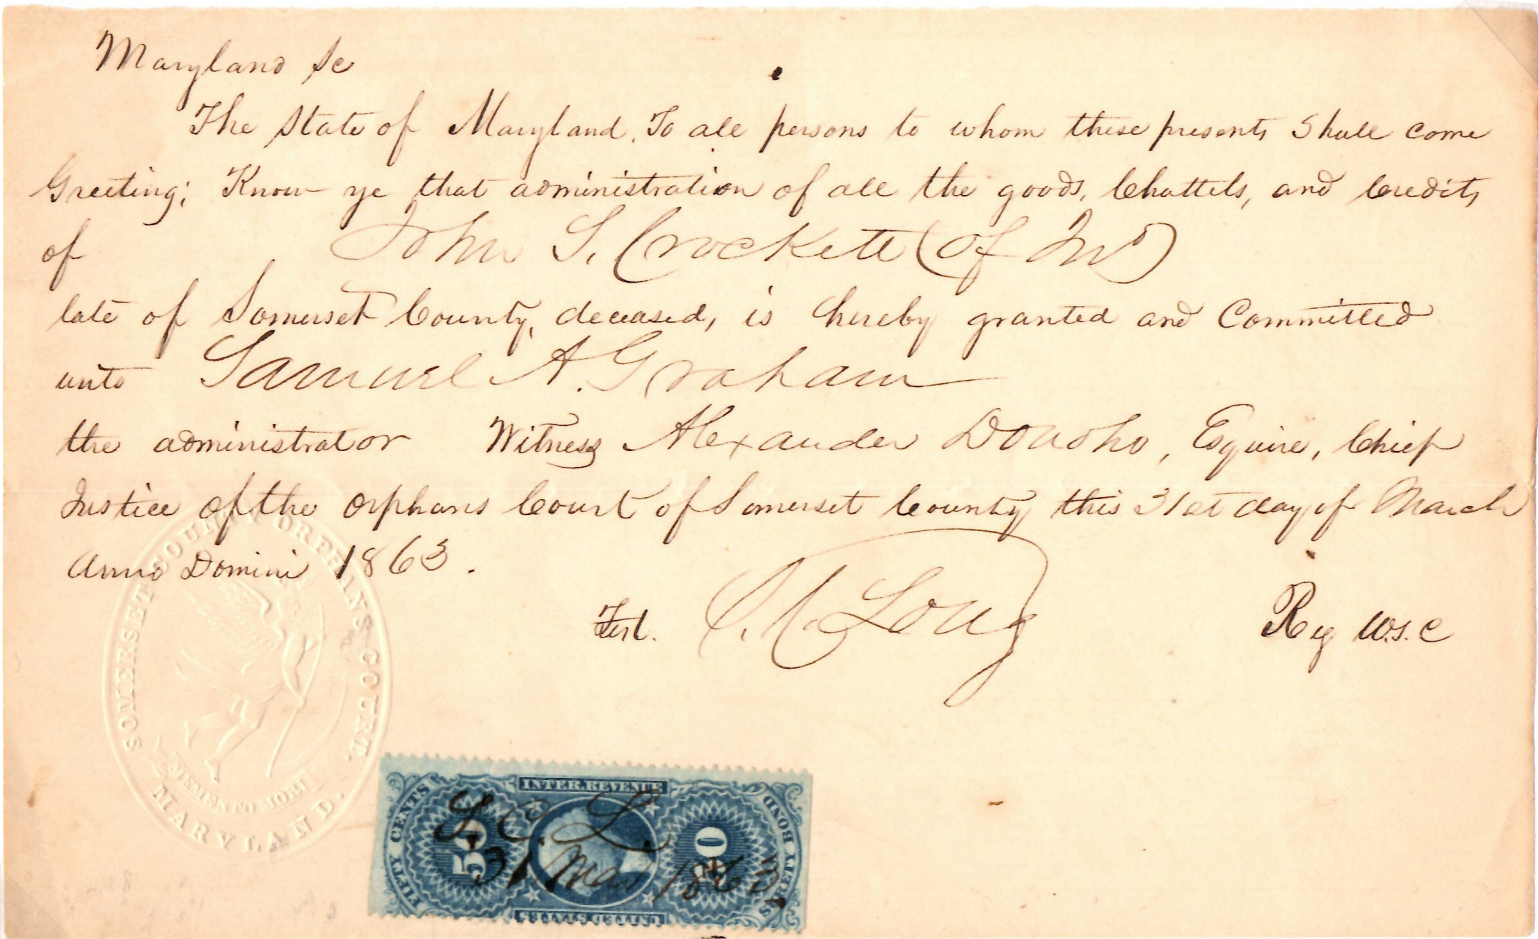 Maryland Sc
The State of Maryland, To all persons to whom these presents Shall come
Greeting; Know ye that administration of all the goods, Chattels, and Credits
of John S. Crockett (of Jno)
late of Somerset County, deceased, is hereby granted and Committed
unto Samuel A. Graham
the administrator Witness Alexander Donoho, Esquire, Chief
Justice of the Orphans Court of Somerset County this 31st day of March
Anno Domini 1863.
Test. Long Reg W.S.C
SOMERSET COUNTY ORPHANS COURT.
MEMENTO MORI
MARYLAND.
INTER. REVENUE
FIFTY CENTS
50
50
SURETY BOND
UNITED STATES
L.
31 Mar 1863.